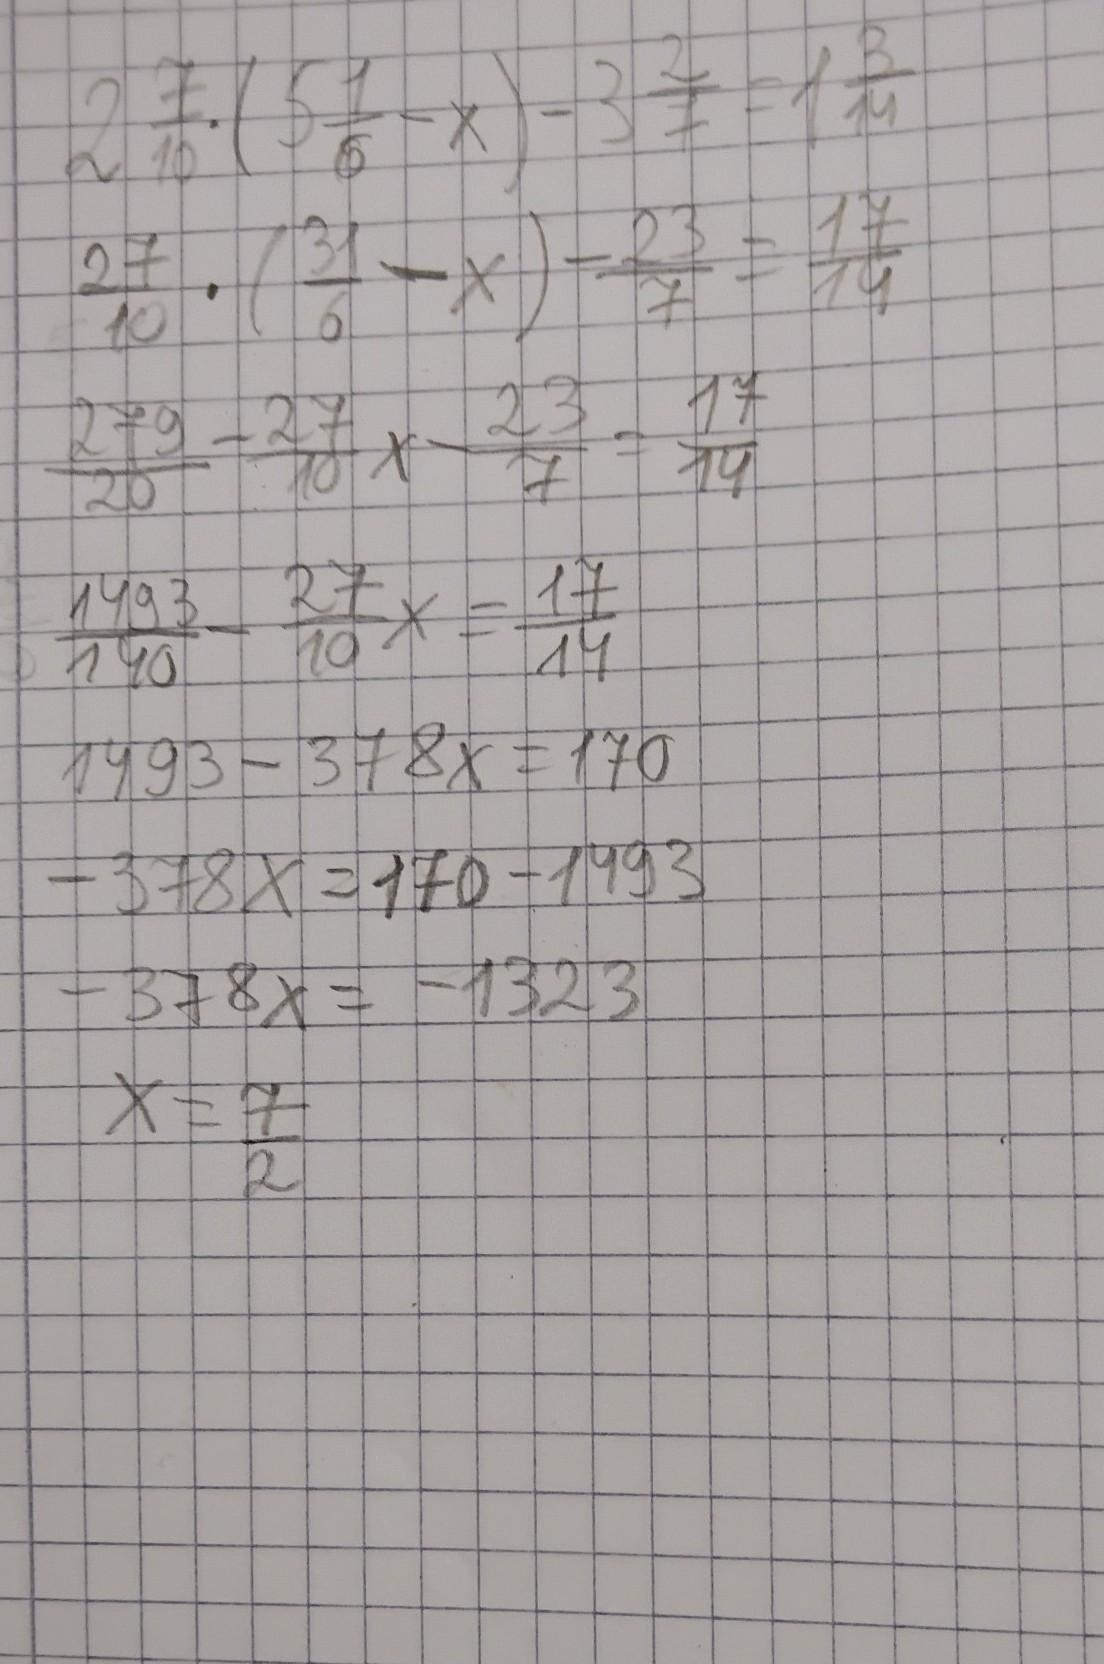 2 7/10 · (5 1/6 - x) - 3 2/7 = 1 3/14
27/10 · (31/6 - x) - 23/7 = 17/14
279/20 - 27/10 x - 23/7 = 17/14
1493/140 - 27/10 x = 17/14
1493 - 378x = 170
-378x = 170 - 1493
-378x = -1323
x = 7/2